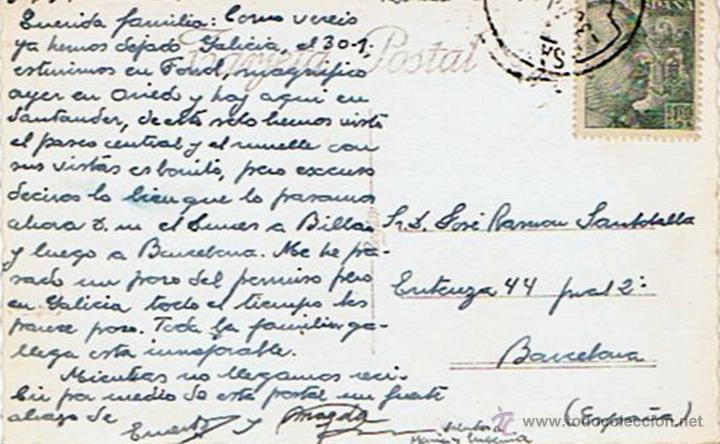 Querida familia: Como vereis
ya hemos dejado Galicia, el 30-1
estuvimos en magnifico
ayer en Ovied y hoy aqui en
Santander, de esta solo hemos visto
el paseo central y el muelle con
sus vistas es bonito, pero excuso
deciros lo bien que lo pasamos
ahora en el Lunes a Bilbao
y luego a Barcelona. Me he pa-
sado un poco del permiso pero
en Galicia todo el tiempo les
parece poco. Toda la familia ga-
llega esta inmejorable.
Mientras no llegamos reci-
bir por medio de esta postal un fuerte
abrazo de
y Magda
Tarjeta Postal
ESPAÑA
Sr. D. José Ramon Santolalla
Entenza 44 pral 2ª
Barcelona
(España)
todocoleccion.net